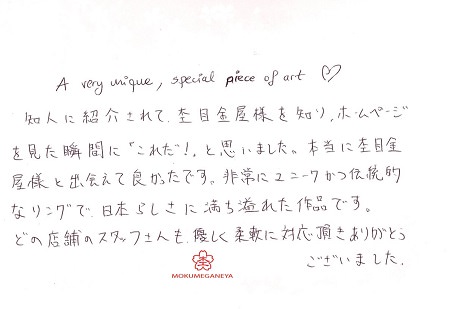 A very unique, special piece of art ♡
知人に紹介されて、杢目金屋様を知り、ホームページ
を見た瞬間に「これだ!」と思いました。本当に杢目金
屋様と出会えて良かったです。非常にユニークかつ伝統的
なリングで、日本らしさに満ち溢れた作品です。
どの店舗のスタッフさんも、優しく柔軟に対応頂きありがとう
ございました。
MOKUMEGANEYA